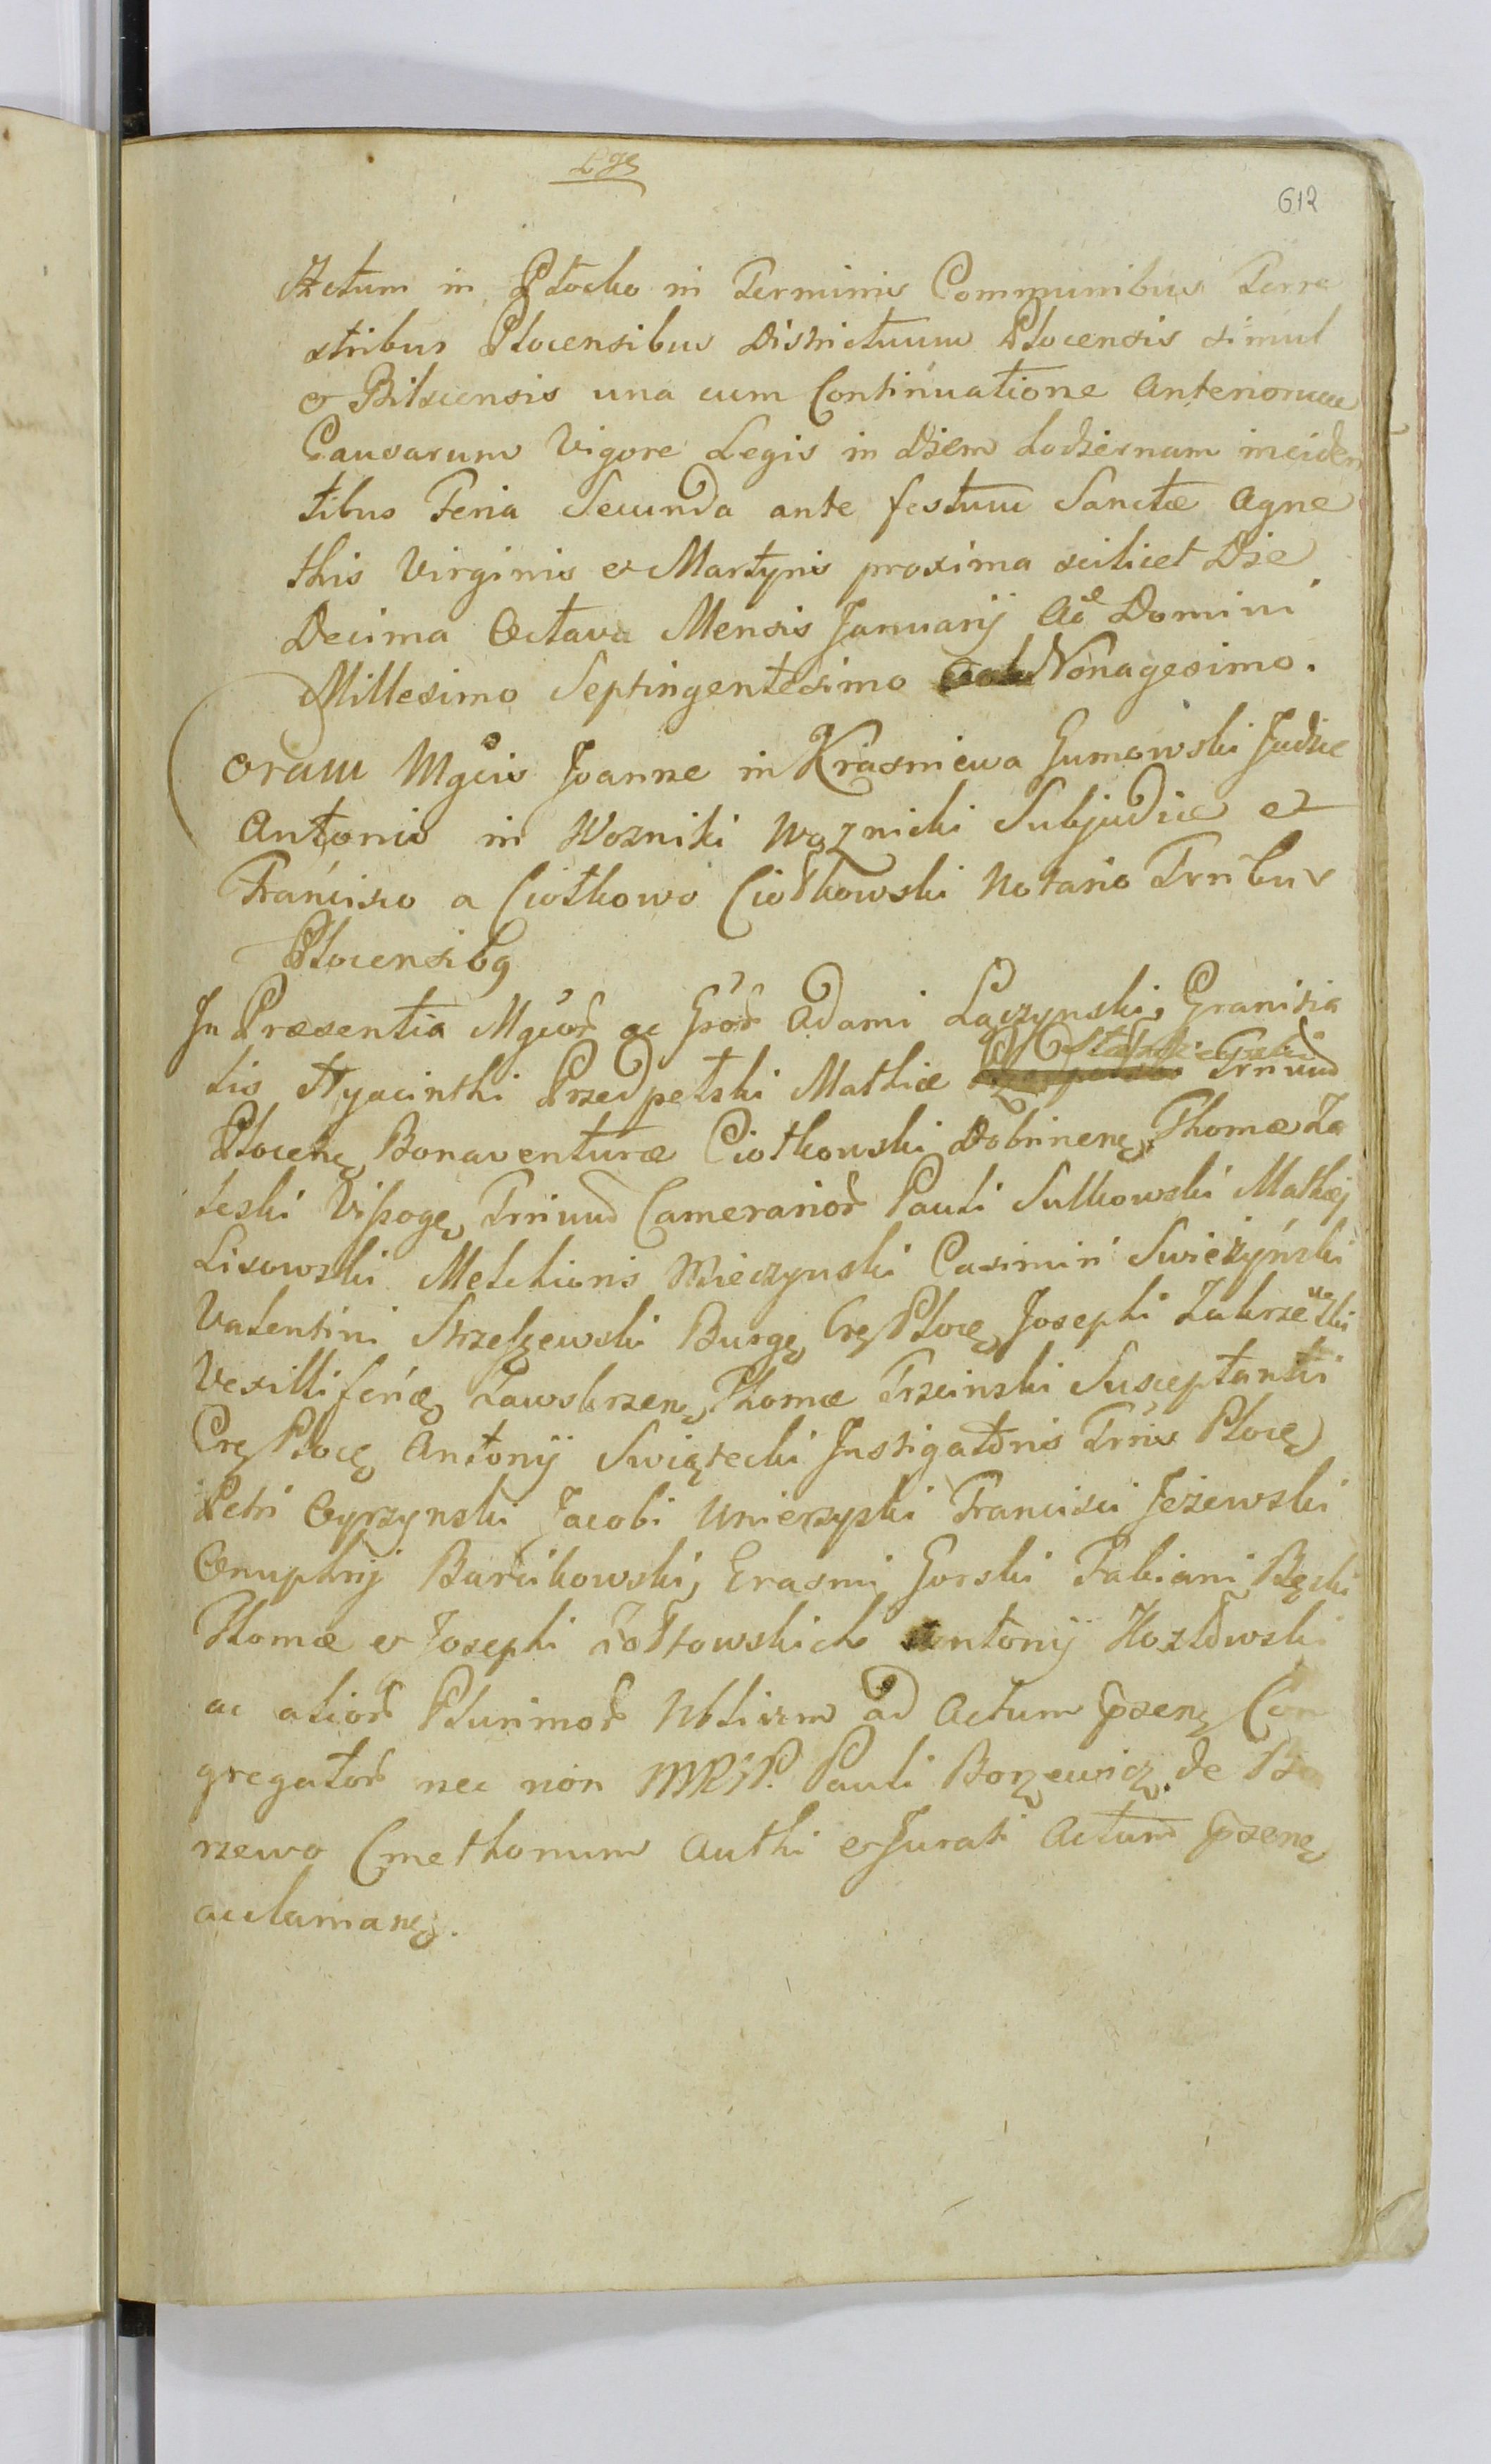 612
Actum in Płocko in Terminis Communibus Terre
stribus Plocensibus Districtuum Plocensis simul
et Bilscensis una cum Continuatione Anteriorum
Causarum Vigore Legis in Diem hodiernam inciden
tibus Feria Secunda ante festum Sanctæ Agne
this Virginis et Martyris proxima scilicet Die
Decima Octava Mensis Januarij Ao Domini
Millesimo Septingentesimo Nonagesimo.
Coram Mgcis Joanne in Krasniewa Gumowski Judice
Antonio in Wozniki Woznicki Subjudice et
Francisco a Ciołkowo Ciołkowski Notario Trribus
Plocensibg
In Præsentia Mgcor ac Gsor Adami Łączynski, Granicia
lis Hyacinthi Przedpełski Mathiæ Trriuũ
Plocenę Bonaventuræ Ciołkowski Dobrinenę Thomæ Za
leski Vissogę Trriuũ Camerarior Pauli Sulkowski Mathej
Lisowski Melchioris Mieczynski Casimiri Swieżyński
Valentini Strzeszewski Burgę Crę Plocę Josephi Zakrzewski
Vexilliferię Zawskrzenę Thomæ Trzcinski Susceptantis
Crę Plocę Antonij Swięcecki Instigatoris Trris Plocę
Petri Cyrzynski Jacobi Unierzyski Francisci Jeżewski
Onuphrij Barcikowski, Erasmi Gorski Fabiani Bęski
Thomæ et Josephi Żołtowskich Antonij Kozłowski
ac alior Plurimor Nblium ad Actum psenę Con
gregator nec non MRSP. Pauli Borzewicz de Bo
rzewo Cmethonum Authi et Jurati Actum psenę
acclamanę.